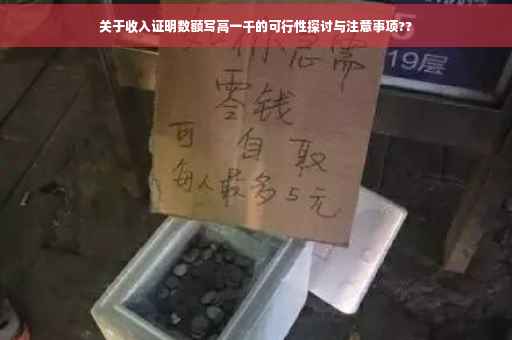 关于收入证明数额写高一千的可行性探讨与注意事项??
如你急需
零钱
可自取
每人最多5元
5
19层